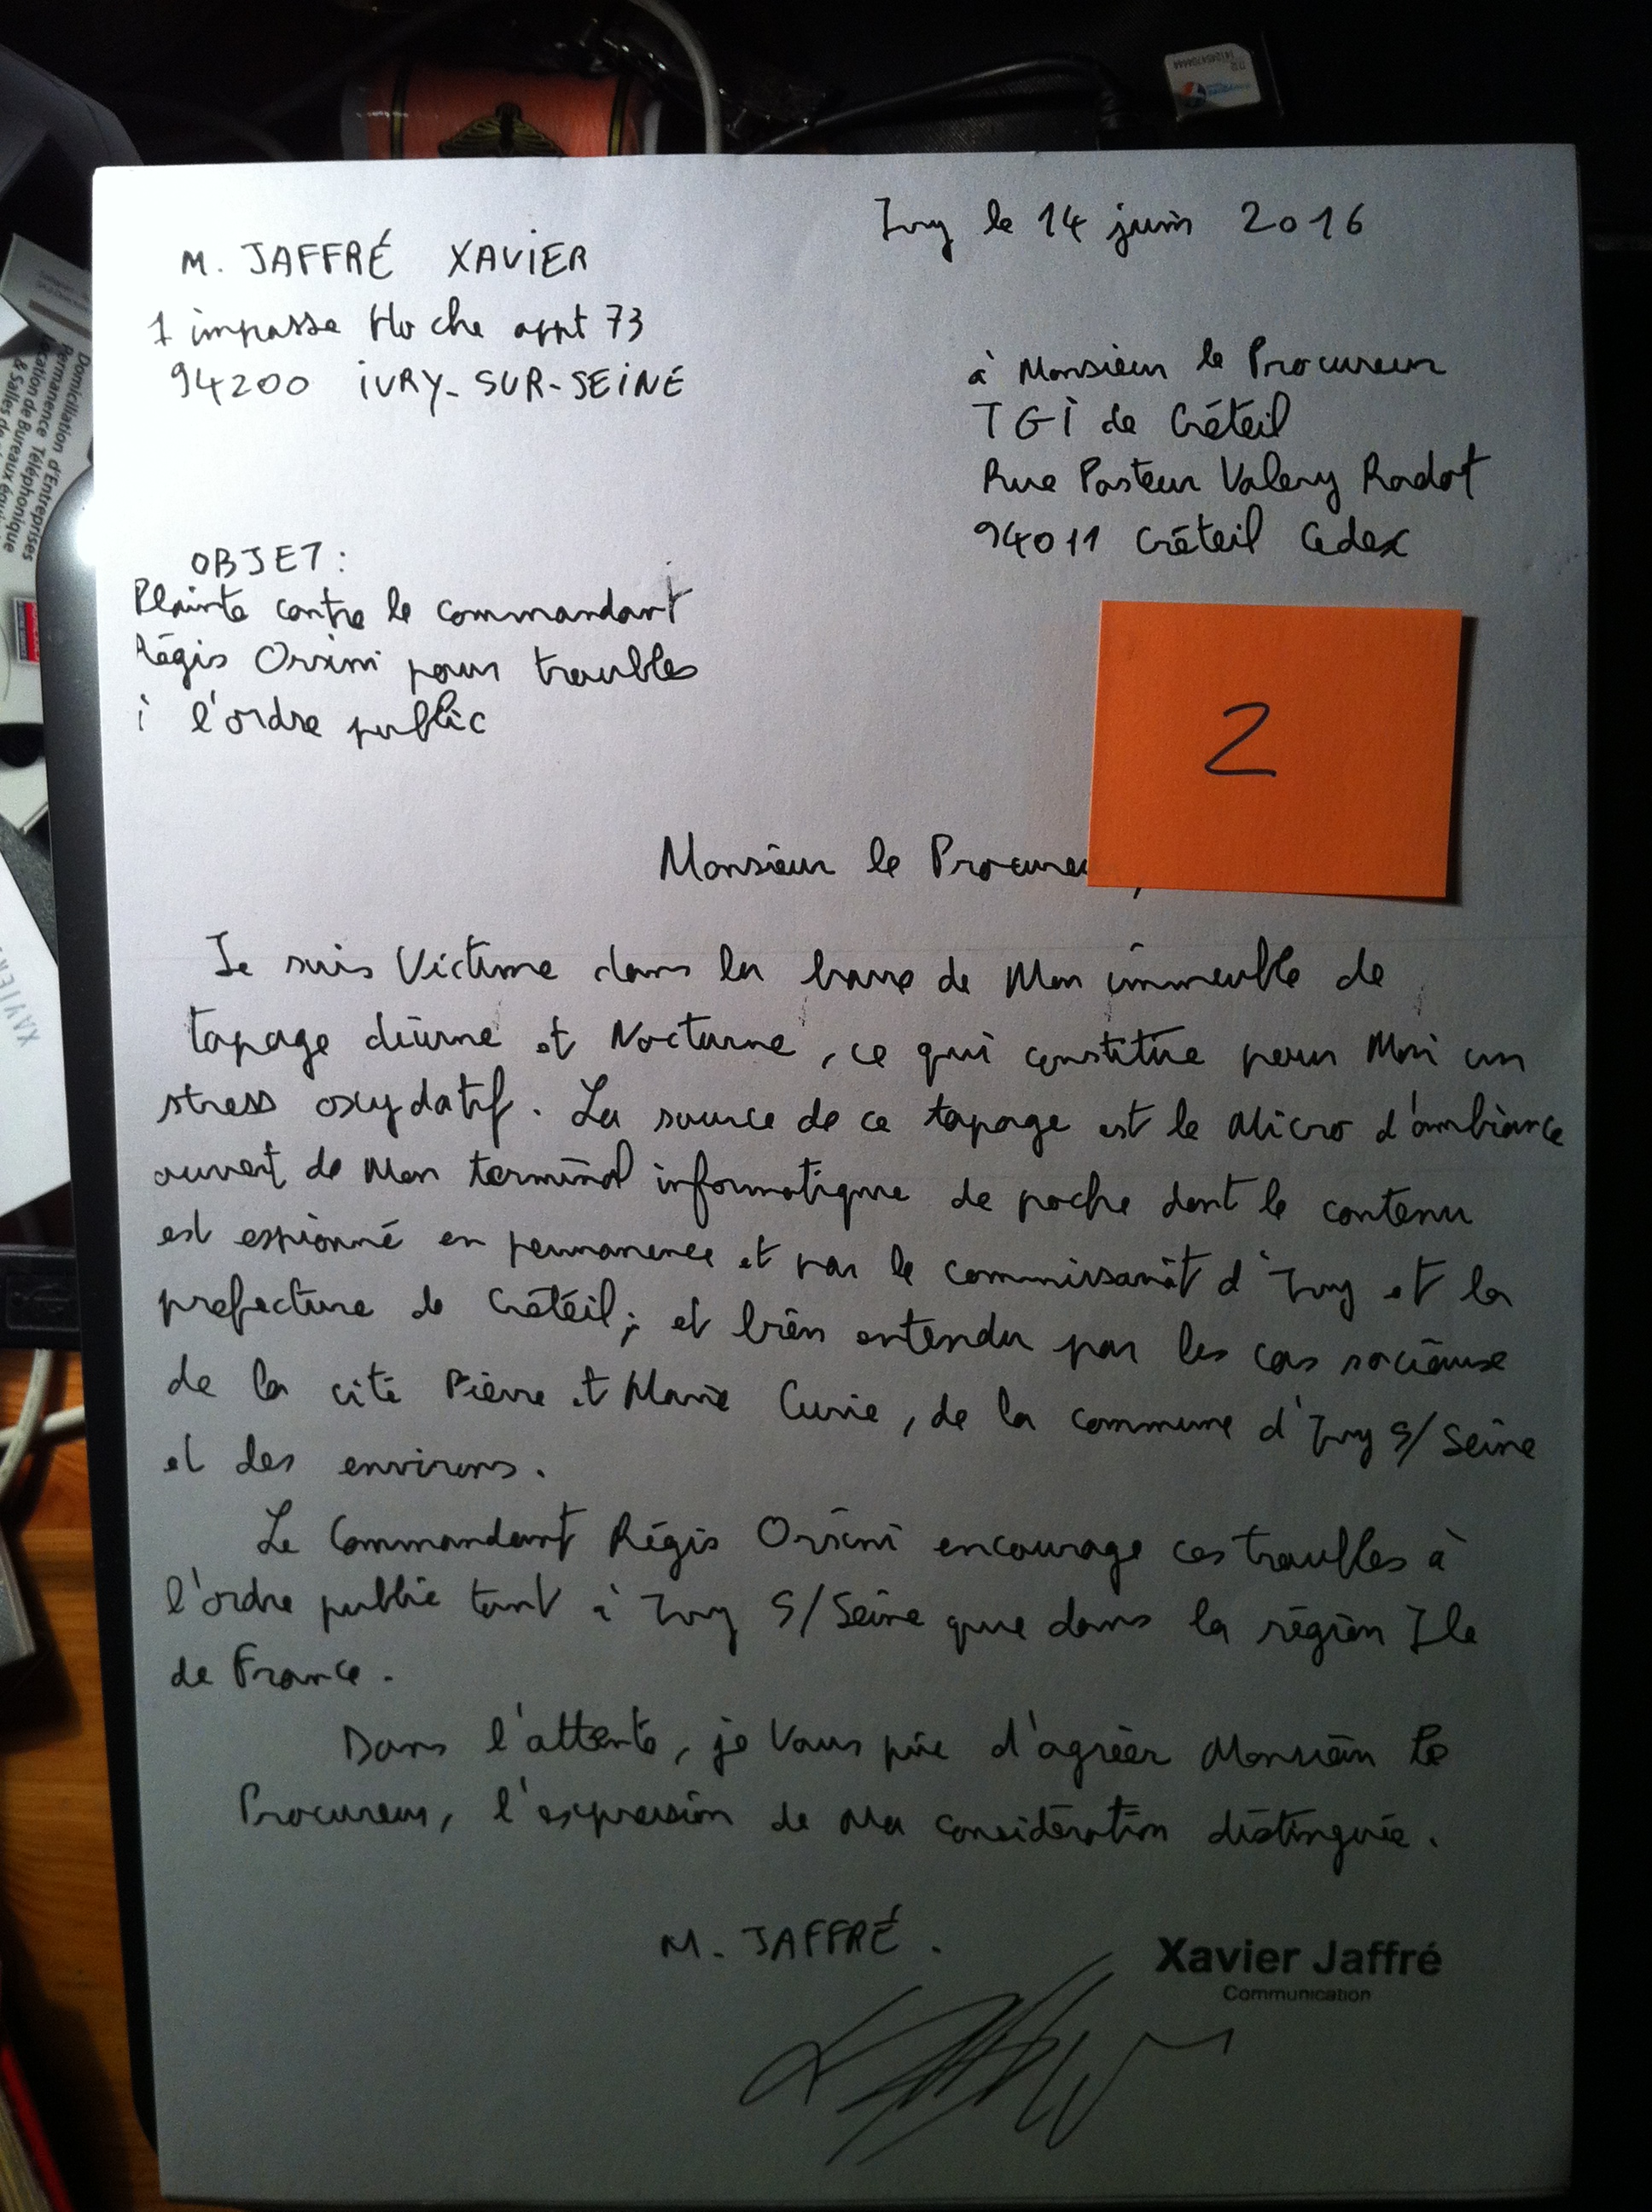 Ivry le 14 juin 2016
M. JAFFRÉ XAVIER
1 impasse Hoche appt 73
94200 IVRY-SUR-SEINE
à Monsieur le Procureur
TGI de Créteil
Rue Pasteur Valery Radot
94011 Créteil Cedex
OBJET :
Plainte contre le commandant
Régis Orsini pour troubles
à l'ordre public
2
Monsieur le Procureu
Je suis Victime dans la barre de Mon immeuble de
tapage diurne et Nocturne, ce qui constitue pour Moi un
stress oxydatif. La source de ce tapage est le Micro d'ambiance
ouvert de Mon terminal informatique de poche dont le contenu
est espionné en permanence et par le commissariat d'Ivry et la
prefecture de Créteil; et bien entendu par les cas sociaux
de la cité Pierre et Marie Curie, de la commune d'Ivry S/Seine
et des environs.
Le Commandant Régis Orsini encourage ces troubles à
l'ordre public tant à Ivry S/Seine que dans la région Ile
de France.
Dans l'attente, je Vous prie d'agréer Monsieur le
Procureur, l'expression de Ma considération distinguée.
M. JAFFRÉ.
Xavier Jaffré
Communication
Domiciliation d'Entreprises
Permanence Téléphonique
Location de Bureaux
& Salles de
XAVIER